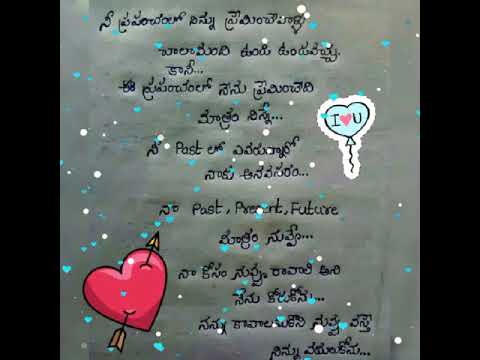 నీ ప్రపంచంలో నిన్ను ప్రేమించేవాళ్ళు
చాలామంది ఉండి ఉండవచ్చు
కానీ...
ఈ ప్రపంచంలో నేను ప్రేమించేది
మాత్రం నిన్నే...
I U
నీ Past లో ఎవరున్నారో
నాకు అనవసరం...
నా Past, Present, Future
మాత్రం నువ్వే...
నా కోసం నువ్వు రావాలి అని
నేను కోరుకోను...
నన్ను కావాలనుకొని నువ్వు వస్తే
నిన్ను వదులుకోను...